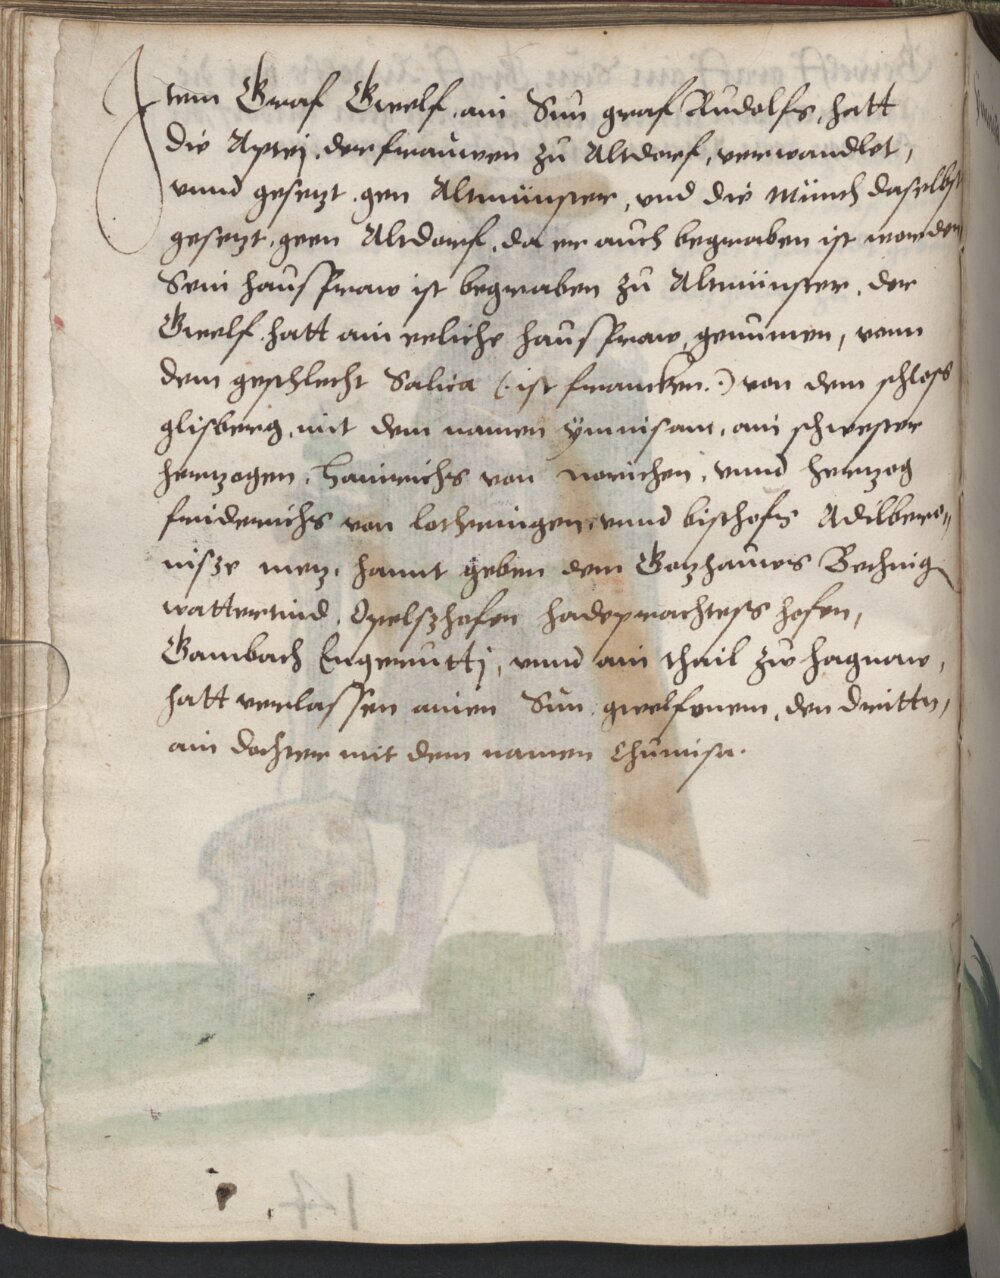 Item Graf Gwelf, ain Sun graf Rudolfs, hatt
die Aptej, der frauwen zu Altdorf, verwandlet,
vnnd gesetzt gen Altmünster, vnd die Münch daselbst
gesetzt, geen Altdorf, da er auch begraben ist worden
Sein haus fraw ist begraben zu Altmünster, der
Gwelf hatt ain eeliche haus fraw genumen, vonn
dem geschlecht Salica (: ist francken :) von dem schloss
glisberg, mit dem namen ÿmnisam, ain schwester
hertzogen, Hainrichs von norichen, vnnd hertzog
friderichs von lothringen, vnnd bischofs Adilbero„
nisze metz, hannt geben dem Gotzhauws Bechnig
wattertind, Opelszhofen hadeprachtess hofen,
Gambach Engerutti, vnnd ain thail zw hagnaw,
hatt verlassen ainen Sun gwelfonem, den dritten,
ain dochter mit dem namen Chunisa.
14